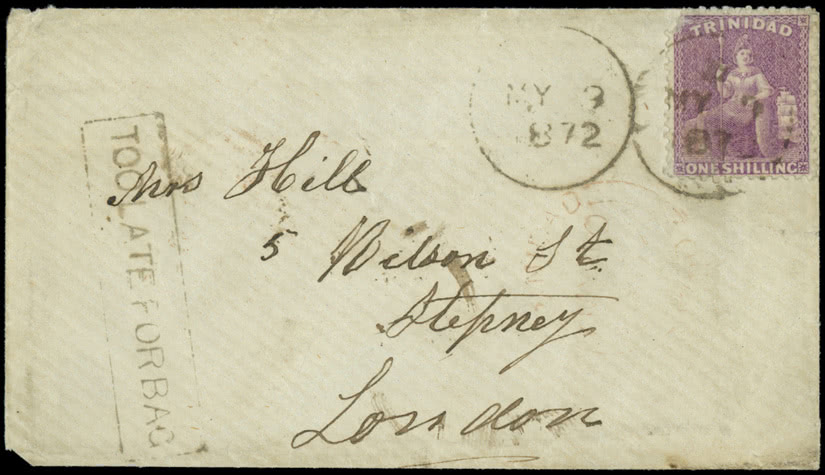 TRINIDAD
ONE SHILLING
MY 9
1872
MY
187
TOO LATE FOR BAG
Mrs Hill
5 Wilson St.
Stepney
London